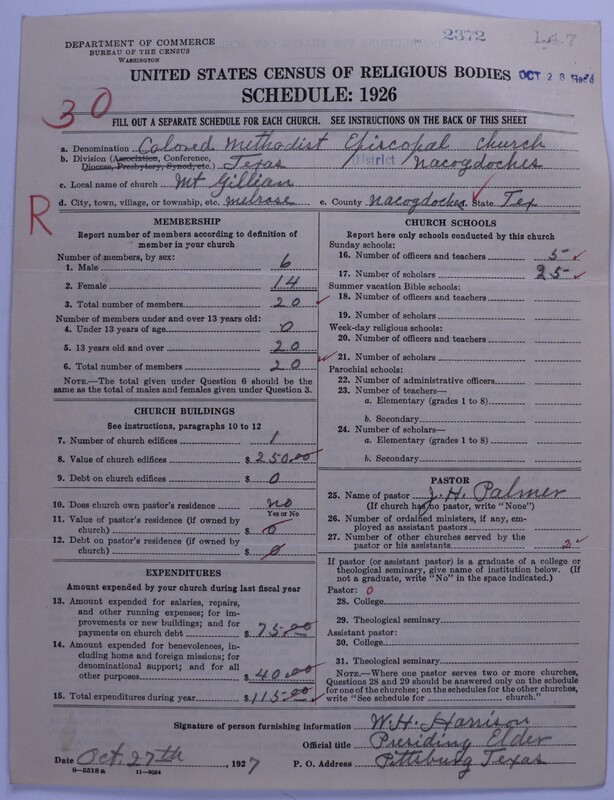 2372
147
DEPARTMENT OF COMMERCE
BUREAU OF THE CENSUS
WASHINGTON
UNITED STATES CENSUS OF RELIGIOUS BODIES
OCT 28 Rec'd
SCHEDULE: 1926
30
FILL OUT A SEPARATE SCHEDULE FOR EACH CHURCH. SEE INSTRUCTIONS ON THE BACK OF THIS SHEET
a. Denomination Colored Methodist Episcopal Church
b. Division (Association, Conference, Diocese, Presbytery, Synod, etc.) Texas District Nacogdoches
c. Local name of church Mt Gillian
d. City, town, village, or township, etc. Melrose e. County Nacogdoches State Tex
R
MEMBERSHIP
Report number of members according to definition of
member in your church
Number of members, by sex:
1. Male 6
2. Female 14
3. Total number of members 20
Number of members under and over 13 years old:
4. Under 13 years of age 0
5. 13 years old and over 20
6. Total number of members 20
NOTE.—The total given under Question 6 should be
same as the total of males and females given under Question 3.
CHURCH BUILDINGS
See instructions, paragraphs 10 to 12
7. Number of church edifices 1
8. Value of church edifices $ 250.00
9. Debt on church edifices $ 0
10. Does church own pastor's residence no
Yes or No
11. Value of pastor's residence (if owned by
church) $ 0
12. Debt on pastor's residence (if owned by
church) $ 0
EXPENDITURES
Amount expended by your church during last fiscal year
13. Amount expended for salaries, repairs,
and other running expenses; for im-
provements or new buildings; and for
payments on church debt $ 75.00
14. Amount expended for benevolences, in-
cluding home and foreign missions; for
denominational support; and for all
other purposes $ 40.00
15. Total expenditures during year $ 115.00
CHURCH SCHOOLS
Report here only schools conducted by this church
Sunday schools:
16. Number of officers and teachers 5
17. Number of scholars 25
Summer vacation Bible schools:
18. Number of officers and teachers
19. Number of scholars
Week-day religious schools:
20. Number of officers and teachers
21. Number of scholars
Parochial schools:
22. Number of administrative officers
23. Number of teachers—
a. Elementary (grades 1 to 8)
b. Secondary
24. Number of scholars—
a. Elementary (grades 1 to 8)
b. Secondary
PASTOR
25. Name of pastor J. H. Palmer
(If church has no pastor, write "None")
26. Number of ordained ministers, if any, em-
ployed as assistant pastors
27. Number of other churches served by the
pastor or his assistants 2
If pastor (or assistant pastor) is a graduate of a college or
theological seminary, give name of institution below. (If
not a graduate, write "No" in the space indicated.)
Pastor: 0
28. College
29. Theological seminary
Assistant pastor:
30. College
31. Theological seminary
NOTE.—Where one pastor serves two or more churches,
Questions 28 and 29 should be answered only on the schedule
for one of the churches; on the schedules for the other churches,
write "See schedule for church."
Signature of person furnishing information W. H. Harrison
Official title Presiding Elder
Date Oct. 27th, 1927 P. O. Address Pittsburg Texas
8—5518a 11—9034